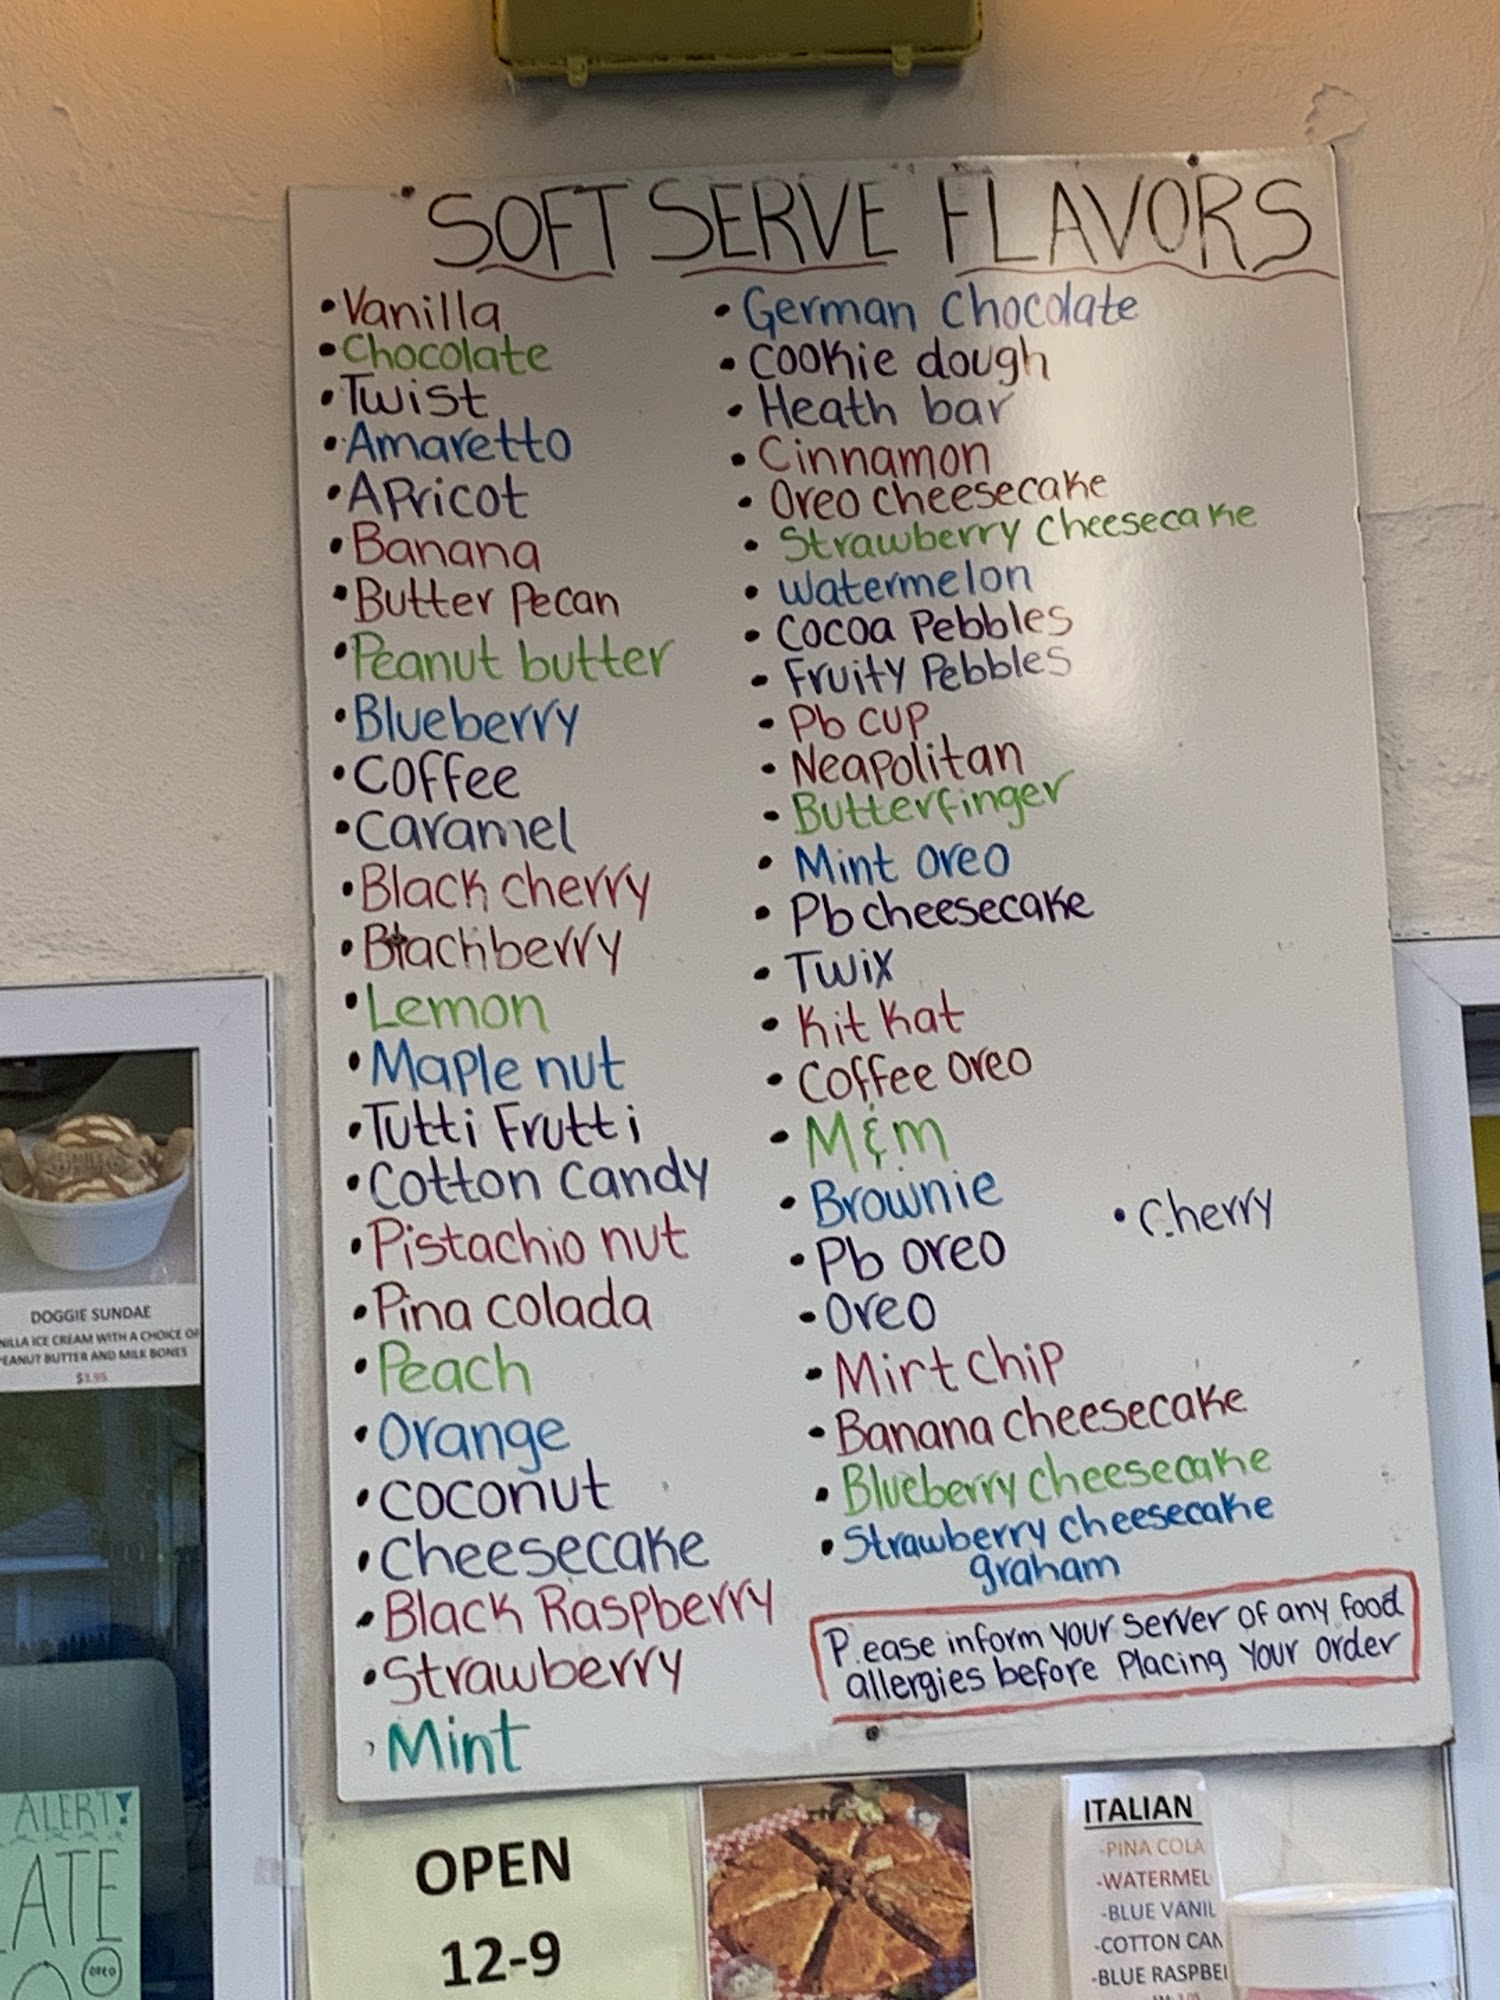 SOFT SERVE FLAVORS
•Vanilla
•Chocolate
•Twist
•Amaretto
•Apricot
•Banana
•Butter Pecan
•Peanut butter
•Blueberry
•Coffee
•Caramel
•Black cherry
•Blackberry
•Lemon
•Maple nut
•Tutti Frutti
•Cotton Candy
•Pistachio nut
•Pina colada
•Peach
•Orange
•Coconut
•Cheesecake
•Black Raspberry
•Strawberry
Mint
•German Chocolate
•Cookie dough
•Heath bar
•Cinnamon
•Oreo cheesecake
•Strawberry Cheesecake
•Watermelon
•Cocoa Pebbles
•Fruity Pebbles
•Pb cup
•Neapolitan
•Butterfinger
•Mint oreo
•Pb cheesecake
•Twix
•Kit Kat
•Coffee oreo
•M&m
•Brownie
•Pb oreo
•Oreo
•Mint Chip
•Banana cheesecake
•Blueberry cheesecake
•Strawberry cheesecake
graham
•Cherry
Please inform your server of any food
allergies before Placing Your order
DOGGIE SUNDAE
NILLA ICE CREAM WITH A CHOICE OF
PEANUT BUTTER AND MILK BONES
$3.95
ALERT!
ATE
OREO
OPEN
12-9
ITALIAN
-PINA COLA
-WATERMEL
-BLUE VANIL
-COTTON CAN
-BLUE RASPBE